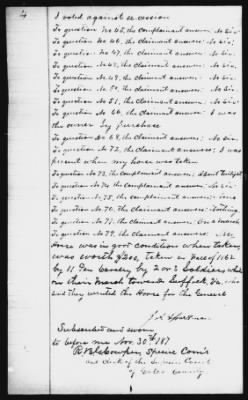 4
I voted against secession
To question No 45, the complainant answers: No Sir.
To question No 46, the claimant answers: No Sir.
To question No 47, the claimant answers: No Sir.
To question No 48, the claimant answers: No Sir.
To question No. 49, the claimant answers: No Sir.
To question No. 50, the claimant answers: No Sir.
To question No. 51, the claimant answers: No Sir.
To question No. 66, the claimant answers: I was
the owner by purchase.
To question No 69, the claimant answers: No Sir.
To question No 72, the claimant answers: I was
present when my horse was taken
To question No 73, the complainant answers:
To question No 74, the complainant answers: No Sir
To question No 75, the complainant answers: none
To question No. 76, the claimant answers: Nothing
To question No. 77, the claimant answers: On a march
To question No. 79, the claimant answers: My
Horse was in good condition when taken,
was worth $200, Taken in June of 1862
by 11 Pen Cavalry by 2 or 3 Soldiers while
on their March towards Suffolk, Va, who
said they wanted the Horse for the
Subscribed and sworn
to before me Nov. 30th 187
Special Com'r
and clerk of the County
of County